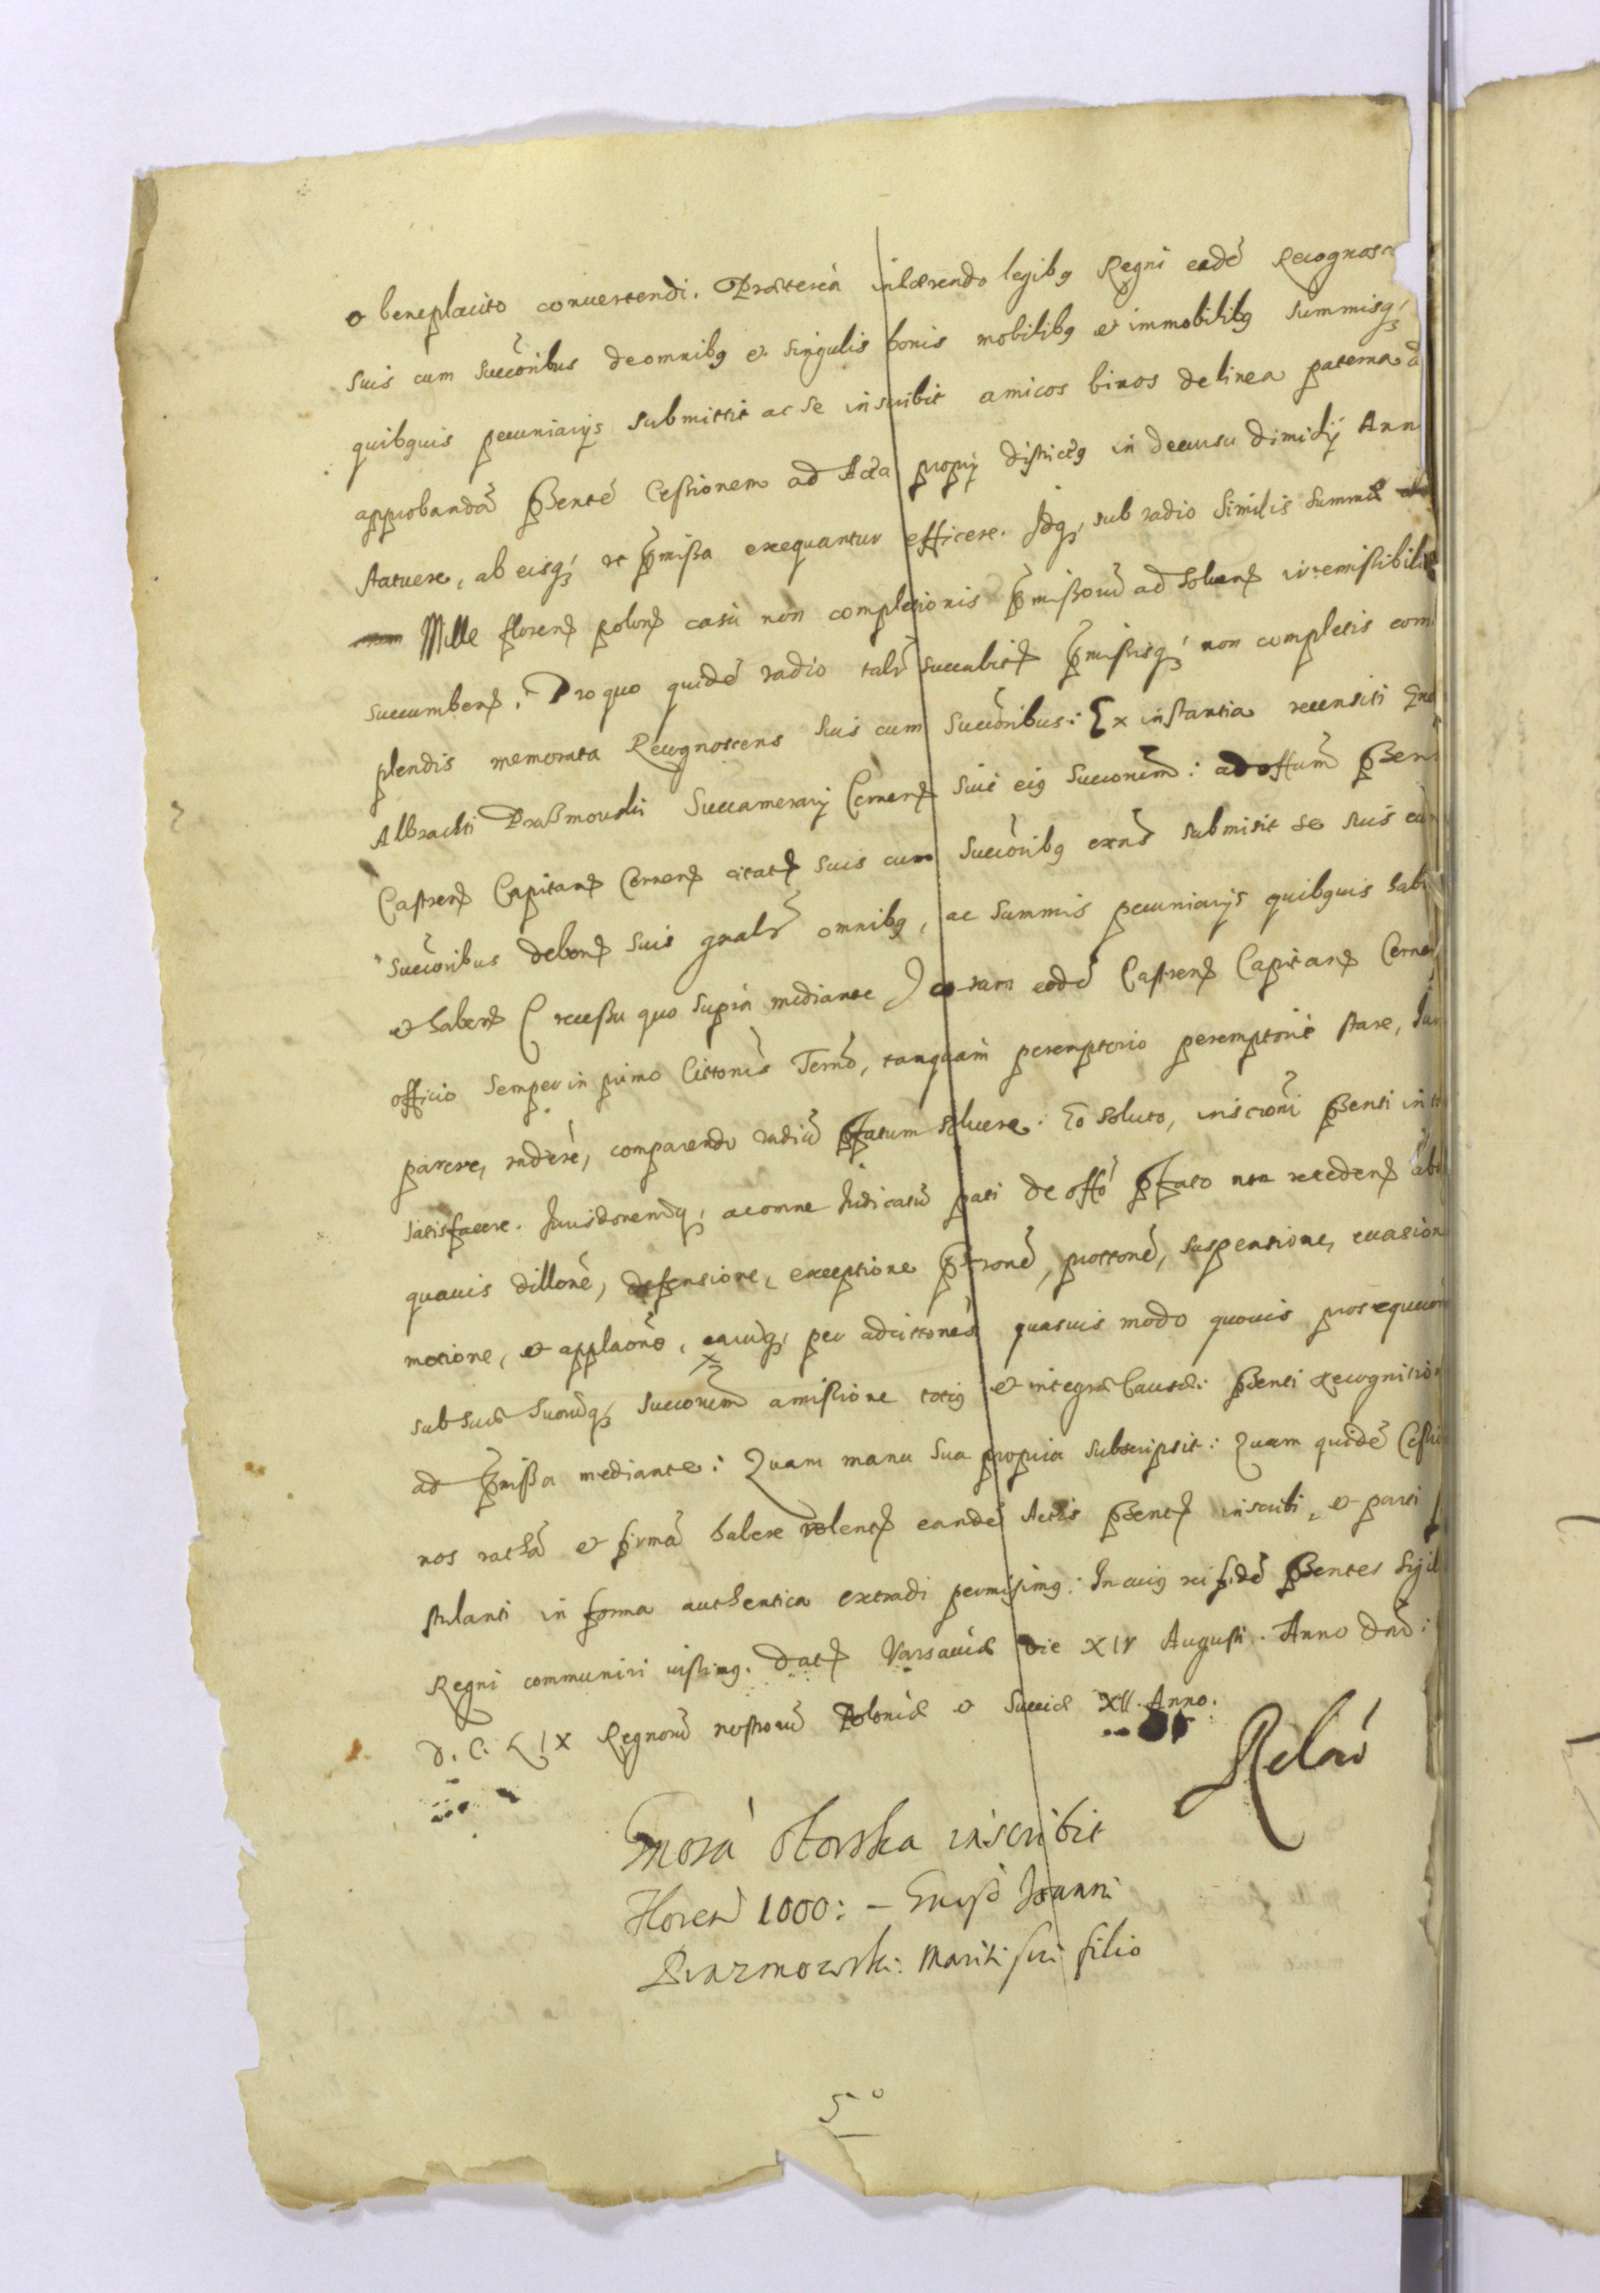 o beneplacito convertendi. Præterea inhærendo legibq Regni eadē Recognosc
suis cum succõribus de omnibq et singulis bonis mobilibq et immobilibq summisq
quibquis pecuniarijs submittit ac se inscribit amicos binos de linea paterna
approbandā pñtē Cessionem ad Acta proprij districtq in decursu dimidij Ann
statuere, ab eisq ut pmissa exequantur efficere. Idq, sub vadio similis summæ
Mille floren polon casu non completionis pmissorū ad solven irremissibilit
succumben. Pro quo quidē vadio talr succubit pmissisq non completis com
plendis memorata Recognoscens suis cum succõribus: Ex instantia recensiti Gnd
Albrachti Prasmovski Succamerarij Cernen suis eiq succorum: ad offum pñn
Castren Capitan Cernen citat suis cum succõribq exns submisit se suis cum
succõribus de bon suis gnalr omnibq, ac summis pecuniarijs quibquis hab
et haben (recessu quo supra mediante) coram eodē Castren Capitan Cernen
officio semper in primo Cittonis Termõ, tanquam peremptorio peremptorie stare, Jur
parere, rndere, comparendo vadiū pfatum solvere: Eo soluto, inscrõni pñti in
satisfacere. Jurisdonemq, ac omne Judicatū pati de offo pfato non receden ab
quavis dillonē, defensione, exceptione pttonē, prottonē, suspensione, evasion
motione, et applaonē, earuq, per adcittonēs quasvis modo quovis prosequuõn
sub suæ suorūq succorum amissione totiq et integræ Causæ: pñti recognition
ad pmissa mediante: Quam manu sua propria subscripsit: Quam quidē Cessio
nos rathā et firmā habere volent eandē Actis pñt inscribi, et parti
stulanti in forma authentica extradi permisimq: In cuiq rei fidē pñtes Sigil
Regni communiri iussimq. Dat Varsaviæ die XIV Augusti. Anno Dnī:
D. C. LIX Regnorū nostrorū Poloniæ et Sueciæ XII. Anno.
Relaō
Gnosa Oborska inscribit
Floren 1000: – Gnoso Joanni
Prazmowski: Mariti sui filio
5º